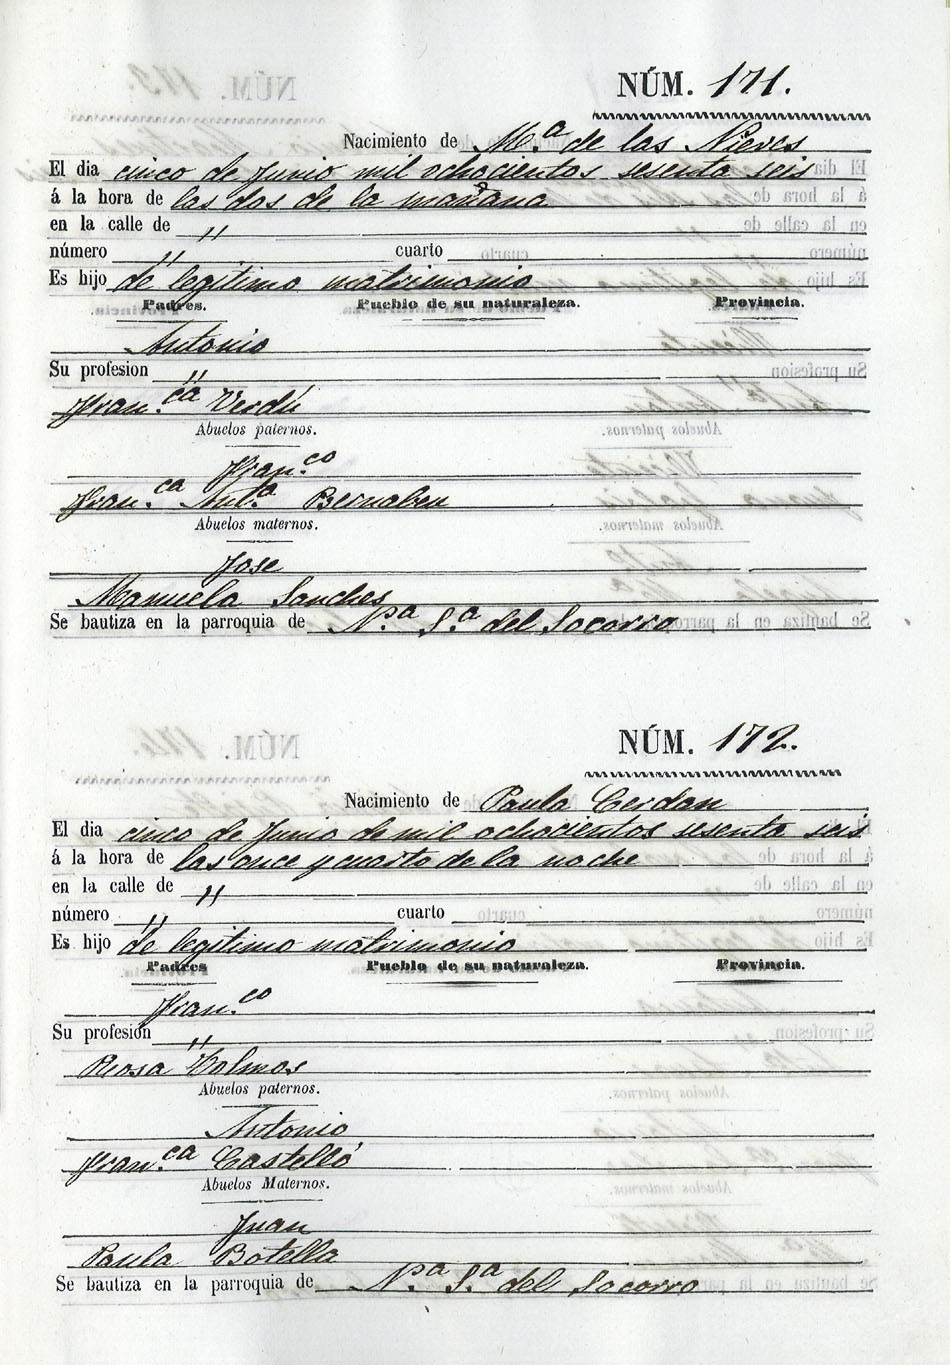 NÚM. 171.
Nacimiento de M.ª de las Nieves
El dia cinco de Junio mil ochocientos sesenta seis
á la hora de las dos de la mañana
en la calle de "
número " cuarto
Es hijo de legitimo matrimonio
Padres. Pueblo de su naturaleza. Provincia.
Antonio
Su profesion "
Fran.ca Verdú
Abuelos paternos.
Fran.co
Fran.ca Ant.a Bernabeu
Abuelos maternos.
Jose
Manuela Sanches
Se bautiza en la parroquia de N.ª S.ª del Socorro
NÚM. 172.
Nacimiento de Paula Cerdan
El dia cinco de Junio de mil ochocientos sesenta seis
á la hora de las once y cuarto de la noche
en la calle de "
número " cuarto
Es hijo de legitimo matrimonio
Padres Pueblo de su naturaleza. Provincia.
Fran.co
Su profesión "
Rosa Tolmos
Abuelos paternos.
Antonio
Fran.ca Castelló
Abuelos Maternos.
Juan
Paula Botella
Se bautiza en la parroquia de N.ª S.ª del Socorro